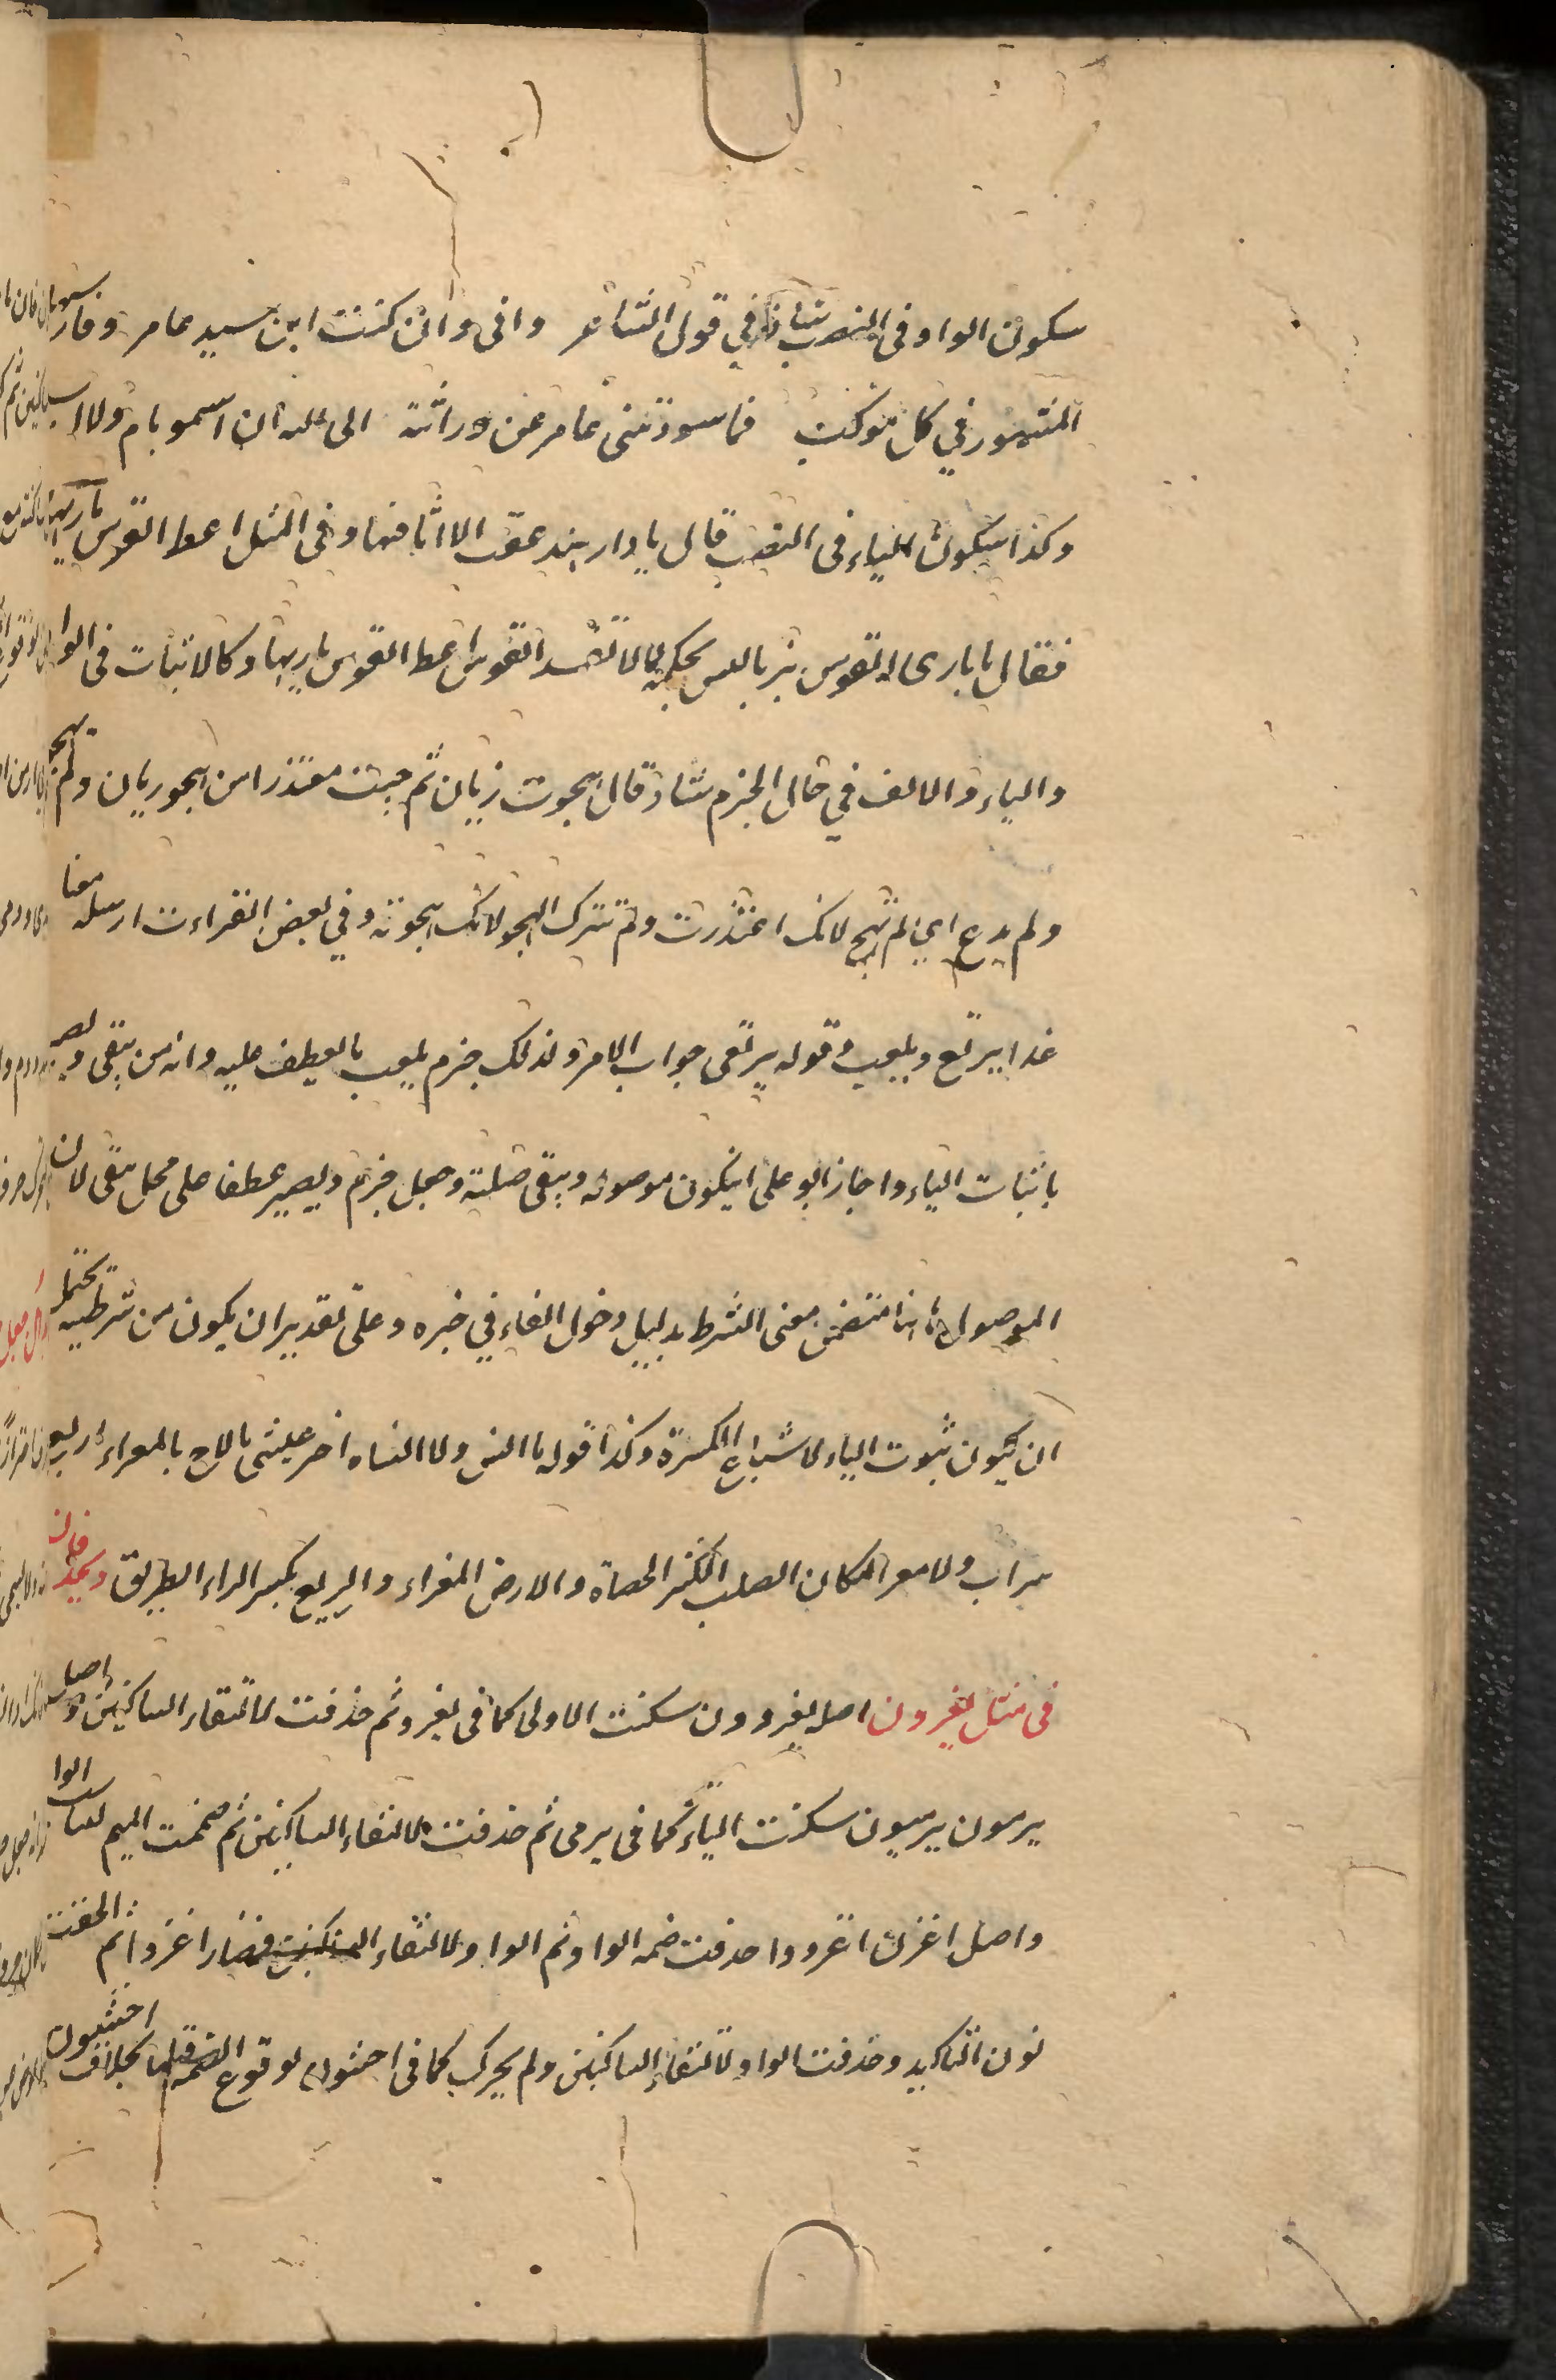 سكون الواو في النصب شاذ في قول الشاعر واني وان كنت ابن سيد عامر وفارسها
المشهور في كل موكب فما سودتني عامر عن وراثة ابى الله ان اسمو بام ولا اب
وكذا سكون الياء في النصب قال يا دار هند عفت الا اثافيها وفي المثل اعط القوس باريها
فقال يا باري القوس بريا ليس يحكمه لا تفسد القوس اعط القوس باريها وكالاثبات في الواو
والياء والالف في حال الجزم شاذ قال هجوت زبان ثم جئت معتذرا من هجو ربان ولم تهجو
ولم تدع اي لم تهج لانك اعتذرت ولم تترك الهجو لانك هجوته وفي بعض القراءت ارسله معنا
غدا يرتع ويلعب وقوله يرتعي جواب الامر ولذلك جزم يلعب بالعطف عليه وانه من يتقي ويصبر
باثبات الياء واجاز ابو علي ان يكون موصولة ويتقي صلته وجعل جزم ويصبر عطفا على محل يتقي لان
الموصول هاهنا متضمن معنى الشرط بدليل دخول الفاء في خبره وعلى تقدير ان يكون من شرطية يحتمل
ان يكون ثبوت الياء لاشباع الكسرة وكذا قوله ما انس ولا انساه اخر عيشتي مالاح بالمعزاء ريع
سراب ولا معز المكان الصلب الكثير الحصاة والارض المعزاء والريع بكسر الراء الطريق ويحذفان
في مثل يغزون اصله يغزوون سكنت الاولى كما في يغزو ثم حذفت لالتقاء الساكنين واصل
يرمون يرميون سكنت الياء كما في يرمي ثم حذفت لالتقاء الساكنين ثم ضمت الميم لتسلم الواو
واصل اغزن اغزووا حذفت ضمة الواو ثم الواو لالتقاء الساكنين فصار اغزوا ثم الحقت
نون التاكيد وحذفت الواو لالتقاء الساكنين ولم يحرك كما في اخشون لوقوع الضمة قبلها بخلاف اخشيون